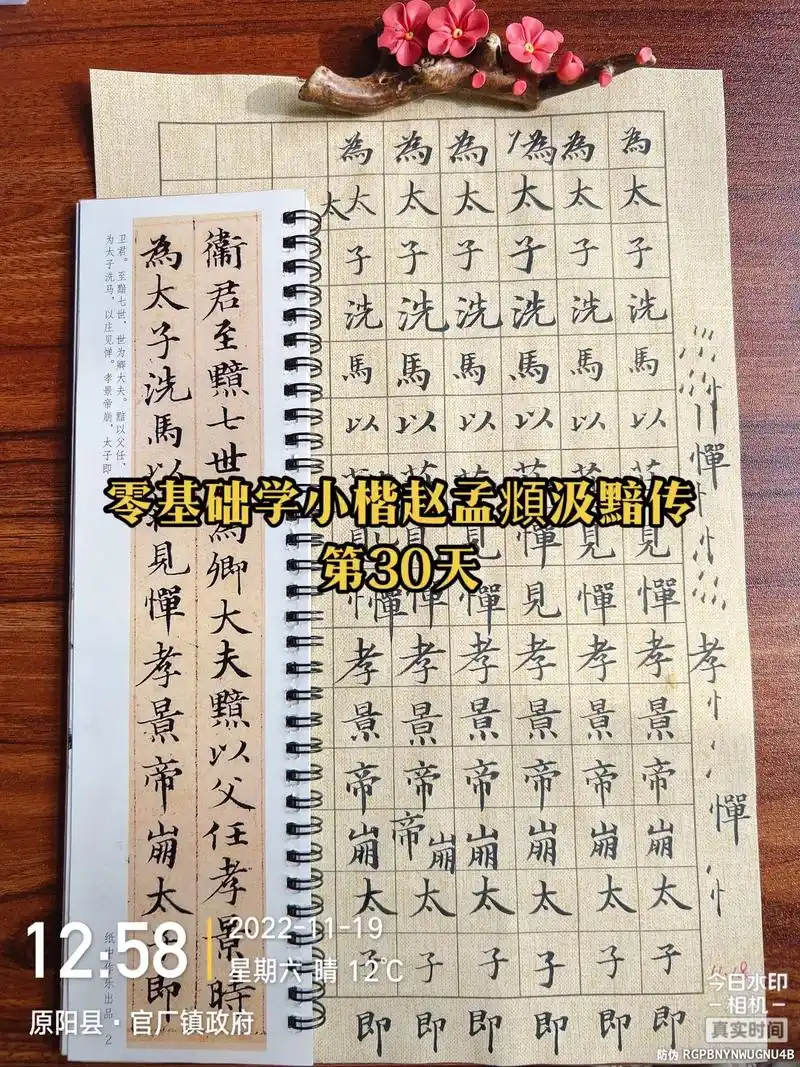 零基础学小楷赵孟頫汲黯传
第30天
卫君。至黯七世，世为卿大夫。黯以父任，
为太子洗马，以庄见惮。孝景帝崩，太子即
衛君至黯七世為卿大夫黯以父任孝景時
為太子洗馬以見憚孝景帝崩太即
2
為為為為為為
太太太太太太太
子子子子子子
洗洗洗洗洗洗
馬馬馬馬馬馬
以以以以以以
見憚見
憚憚憚見憚憚
孝孝孝孝孝孝
景景景景景景
帝帝帝帝帝帝
崩帝崩崩崩崩崩
太太太太太太
子子子子子子
即即即即即即
憚
孝
憚
12:58
2022-11-19
星期六 晴 12℃
原阳县·官厂镇政府
今日水印
相机
真实时间
防伪 RGPBNYNWUGNU4B